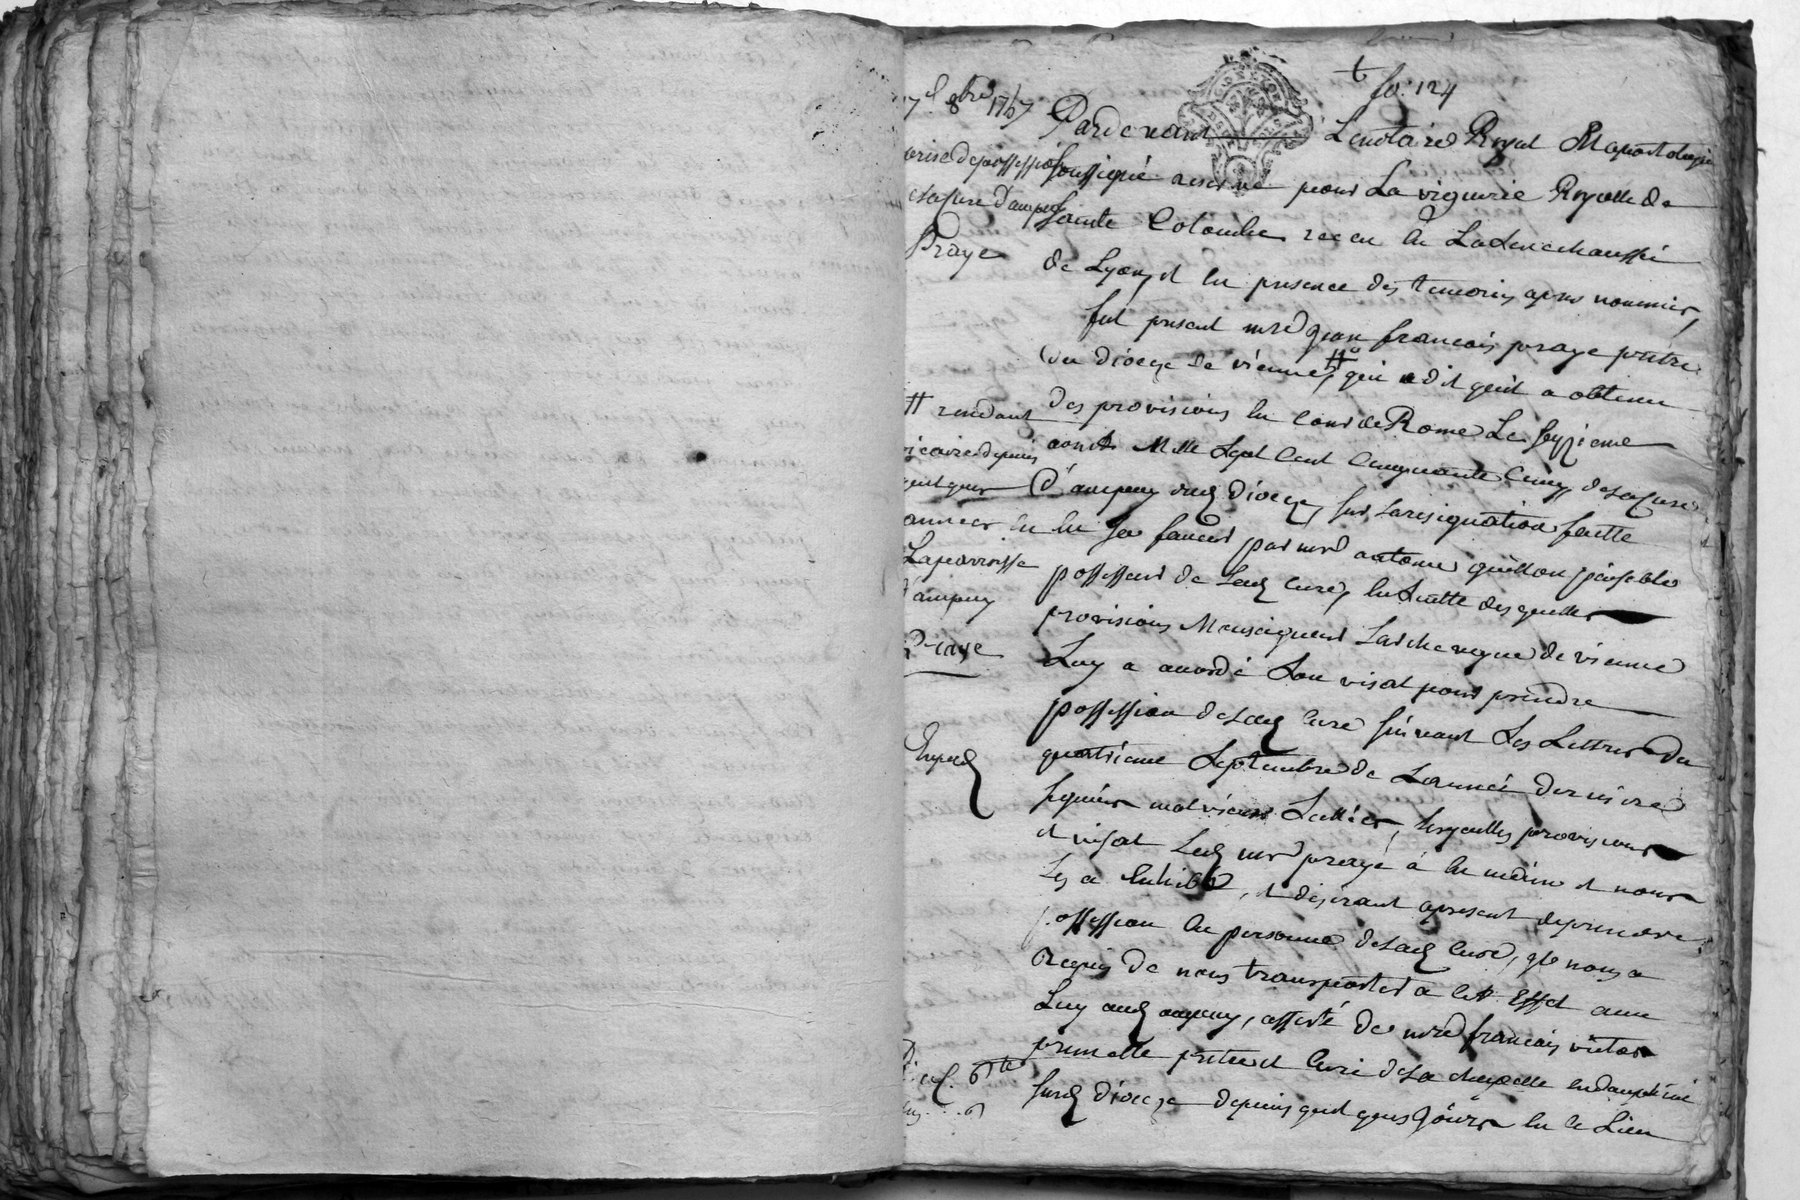 fo. 124
8bre 1757
prise de possession
Praye
Pardevant Le notaire Royal & apostolique
soussigné reservé pour La viguerie Royalle de
sainte Colombe receu en La senechaussé
de Lyon, et en presence des temoins apres nommes,
fut present mre jean francois praye pretre
du dioceze de vienne, # qui a dit qu'il a obtenu
des provisions en Cour de Rome Le seizieme
aoust Mille Sept Cent Cinquante Cinq de la Cure
d'ampuy aud dioceze, sur La resignation faitte
en sa faveur par mre antoine guillon paisible
possesseur de lad Cure, en suitte desquelles
provisions Monseigneur L'archeveque de vienne
Luy a accordé Son visat pour prendre
possession de lad Cure suivant Les Lettres du
quatrieme Septembre de L'année derniere
signées
et visat Led mre praye a en main et nous
Les a Exhibé, et desirant apresent de prendre
possession en personne de lad Cure, il nous a
Requis de nous transporter a Cet Effet avec
Luy aud ampuy, assisté de mre francois victor
prunelle pretre et Curé de La chapelle en dauphiné
susd dioceze depuis quelques jours en ce Lieu
# rendant
vicaire depuis
quelques
années en
La parroisse
d'ampuy
Praye
Exped